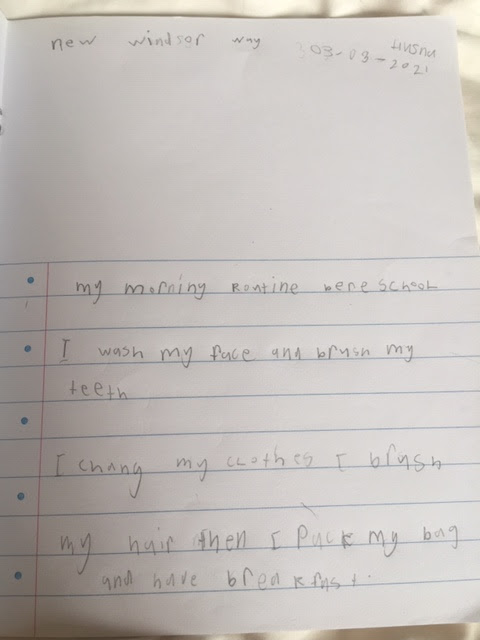 new windsor way 03-03-2021
my morning Routine bere School
I wash my face and brush my
teeth
I chang my clothes I brush
my hair then I Pack my bag
and have breakfast.